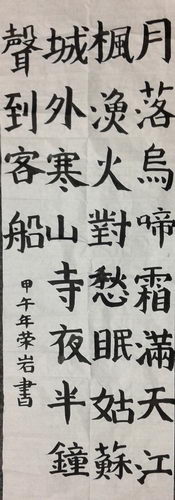 月落烏啼霜滿天江
楓漁火對愁眠姑蘇
城外寒山寺夜半鐘
聲到客船
甲午年荣岩書